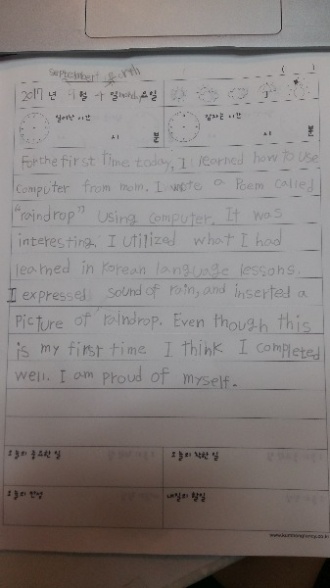 September
2017 년 9 월 일 요일
일어난 시간
시 분
잠자는 시간
시 분
For the first time, today, I learned how to use
computer from mom. I wrote a Poem called
"raindrop" using computer. It was
interesting. I utilized what I had
learned in Korean language lessons.
I expressed sound of rain, and inserted a
Picture of raindrop. Even though this
is my first time I think I completed
well. I am proud of myself.
오늘의 중요한 일
오늘의 착한 일
오늘의 반성
내일의 할일